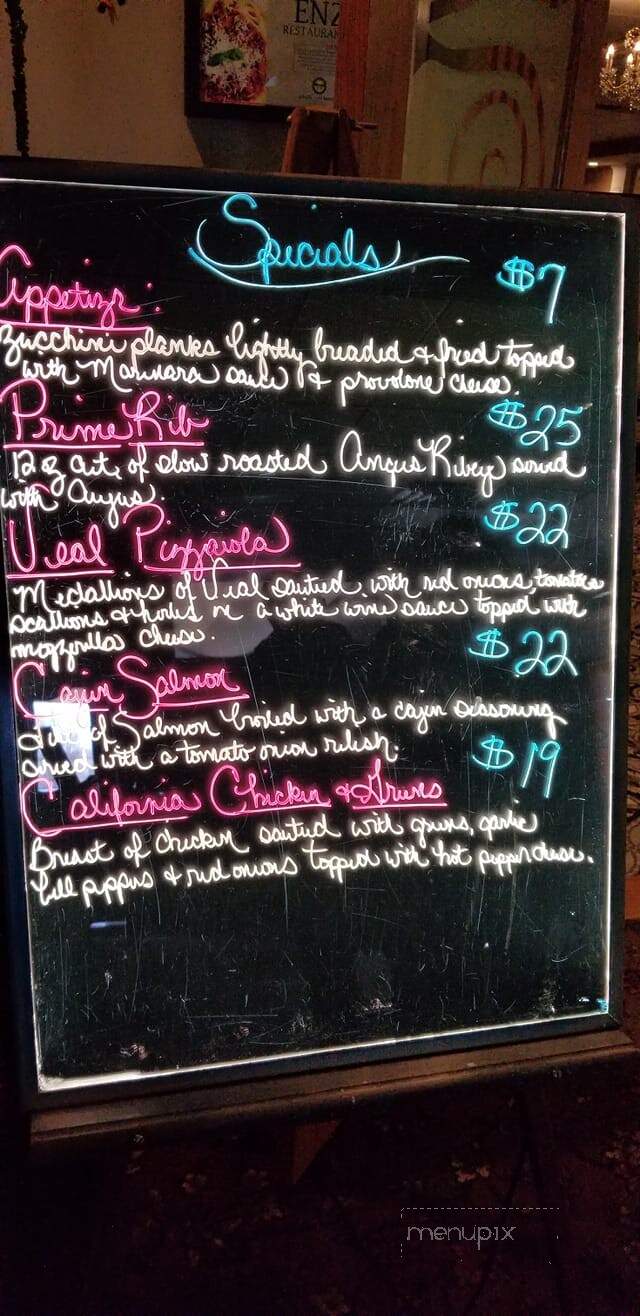 ENZ
RESTAURAN
Specials
$7
Appetizr:
Zucchini planks lightly breaded & fried topped
with Marinara sauce & provolone cheese.
Prime Rib
$25
12 oz cut of slow roasted Angus Ribeye served
with Augus.
$22
Veal Pizzaiola
Medallions of Veal sautied with red onions, tomatoes
scallions & herbs in a white wine sauce topped with
mozzerella cheese.
$22
Cajun Salmon
of Salmon broiled with a cajun seasoning
served with a tomato onion relish.
$19
California Chicken & Gruns
Breast of chicken sautied with gruns, garlic
bell peppers & red onions topped with hot pepper cheese.
menupix